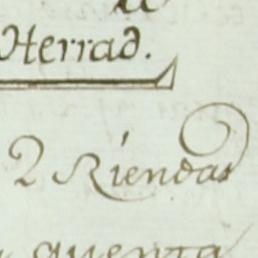 Herrad.
2 Riendas
quenta